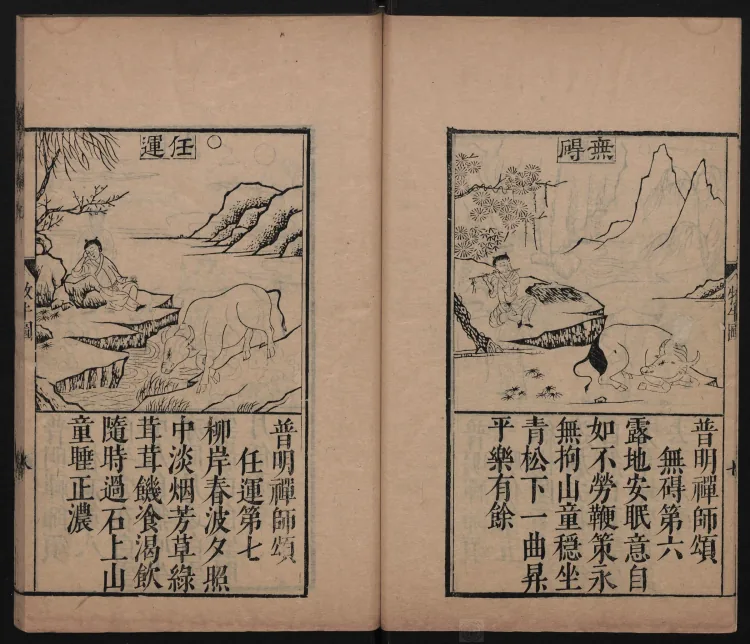 無碍
普明禪師頌
無碍第六
露地安眠意自
如不勞鞭策永
無拘山童穩坐
青松下一曲昇
平樂有餘
任運
普明禪師頌
任運第七
柳岸春波夕照
中淡烟芳草綠
茸茸饑飡渴飲
隨時過石上山
童睡正濃
牧牛圖